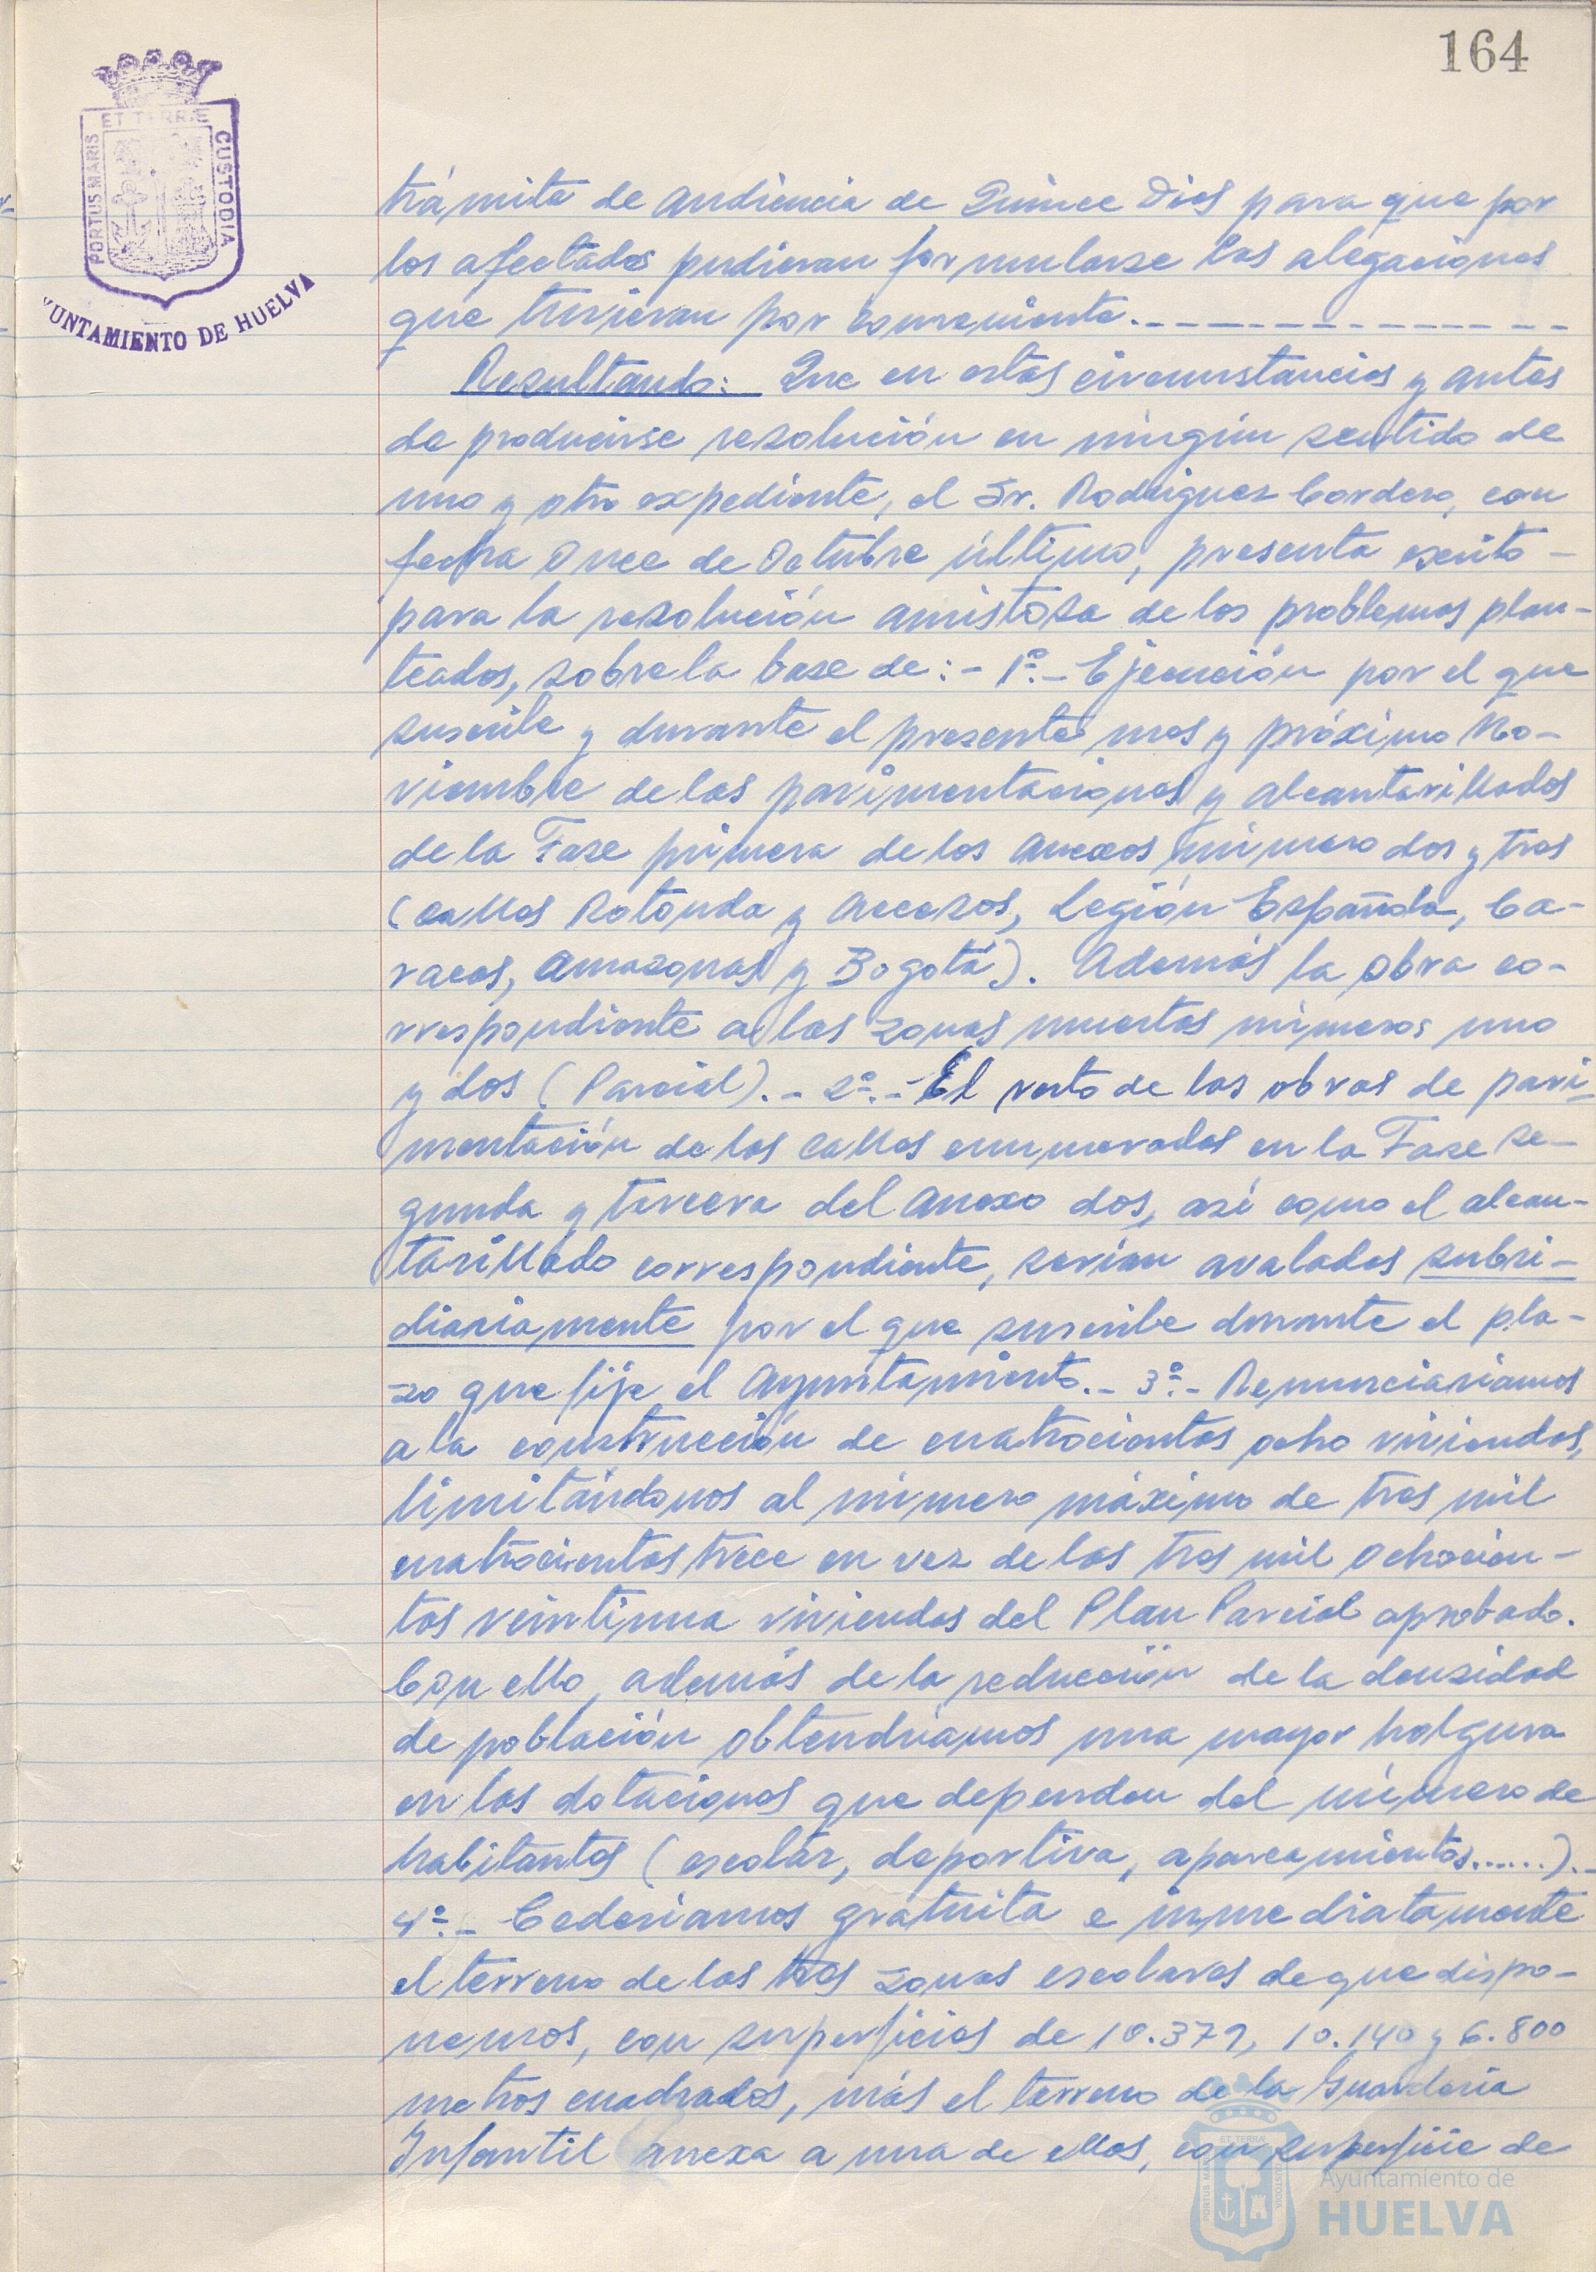 164
ET TERRÆ
PORTUS MARIS
CUSTODIA
YUNTAMIENTO DE HUELVA
trámite de audiencia de Quince Días para que por
los afectados pudieran formularse las alegaciones
que tuvieran por conveniente.
Resultando: Que en estas circunstancias y antes
de producirse resolución en ningún sentido de
uno y otro expediente, el Sr. Rodriguez Cordero, con
fecha Once de Octubre último, presenta escrito
para la resolución amistosa de los problemas plan-
teados, sobre la base de:- 1º.- Ejecución por el que
suscribe y durante el presente mes y próximo No-
viembre de las pavimentaciones y alcantarillados
de la Fase primera de los anexos número dos y tres
(calles Rotonda y Accesos, Legión Española, Ca-
racas, Amazonas y Bogotá). Además la obra co-
rrespondiente a las zonas muertas números uno
y dos (Parcial).- 2º.- El resto de las obras de pavi-
mentación de las calles enumeradas en la Fase se-
gunda y tercera del anexo dos, así como el alcan-
tarillado correspondiente, serían avaladas subsi-
diariamente por el que suscribe durante el pla-
zo que fije el Ayuntamiento.- 3º.- Renunciaríamos
a la construcción de cuatrocientas ocho viviendas,
limitándonos al número máximo de tres mil
cuatrocientas trece en vez de las tres mil ochocien-
tas veintiuna viviendas del Plan Parcial aprobado.
Con ello, además de la reducción de la densidad
de población obtendríamos una mayor holgura
en las dotaciones que dependen del número de
habitantes (escolar, deportiva, aparcamientos......).-
4º.- Cederíamos gratuita e inmediatamente
el terreno de las tres zonas escolares de que dispo-
nemos, con superficies de 10.379, 10.140 y 6.800
metros cuadrados, más el terreno de la Guardería
Infantil anexa a una de ellas, con superficie de
ET TERRÆ
PORTUS MARIS
CUSTODIA
Ayuntamiento de
HUELVA